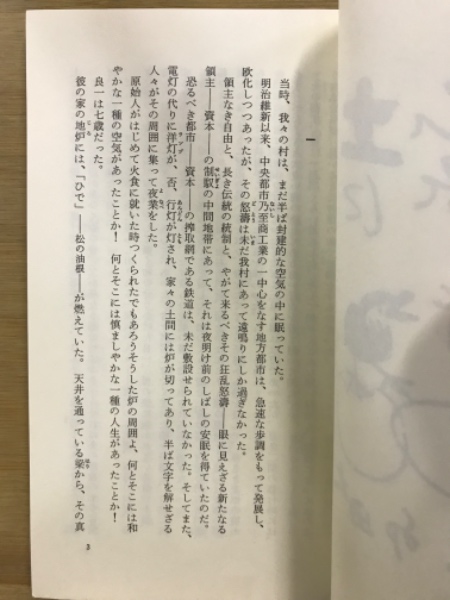 一
当時、我々の村は、まだ半ば封建的な空気の中に眠っていた。
明治維新以来、中央都市乃至商工業の一中心をなす地方都市は、急速な歩調をもって発展し、
欧化しつつあったが、その怒濤は未だ我村にあって遠鳴りにしか過ぎなかった。
領主なき自由と、長き伝統の統制と、やがて来るべきその狂乱怒濤――眼に見えざる新たなる
領主――資本――の制馭の中間地帯にあって、それは夜明け前のしばしの安眠を得ていたのだ。
恐るべき都市――資本――の搾取網である鉄道は、未だ敷設せられていなかった。そしてまた、
電灯の代りに洋灯が、否、行灯が灯され、家々の土間には炉が切ってあり、半ば文字を解せざる
人々がその周囲に集って夜業をした。
原始人がはじめて火食に就いた時つくられたでもあろうそうした炉の周囲よ、何とそこには和
やかな一種の空気があったことか！　何とそこには慎ましやかな一種の人生があったことか！
良一は七歳だった。
彼の家の地炉には、「ひで」――松の油根――が燃えていた。天井を通っている梁から、その真
3